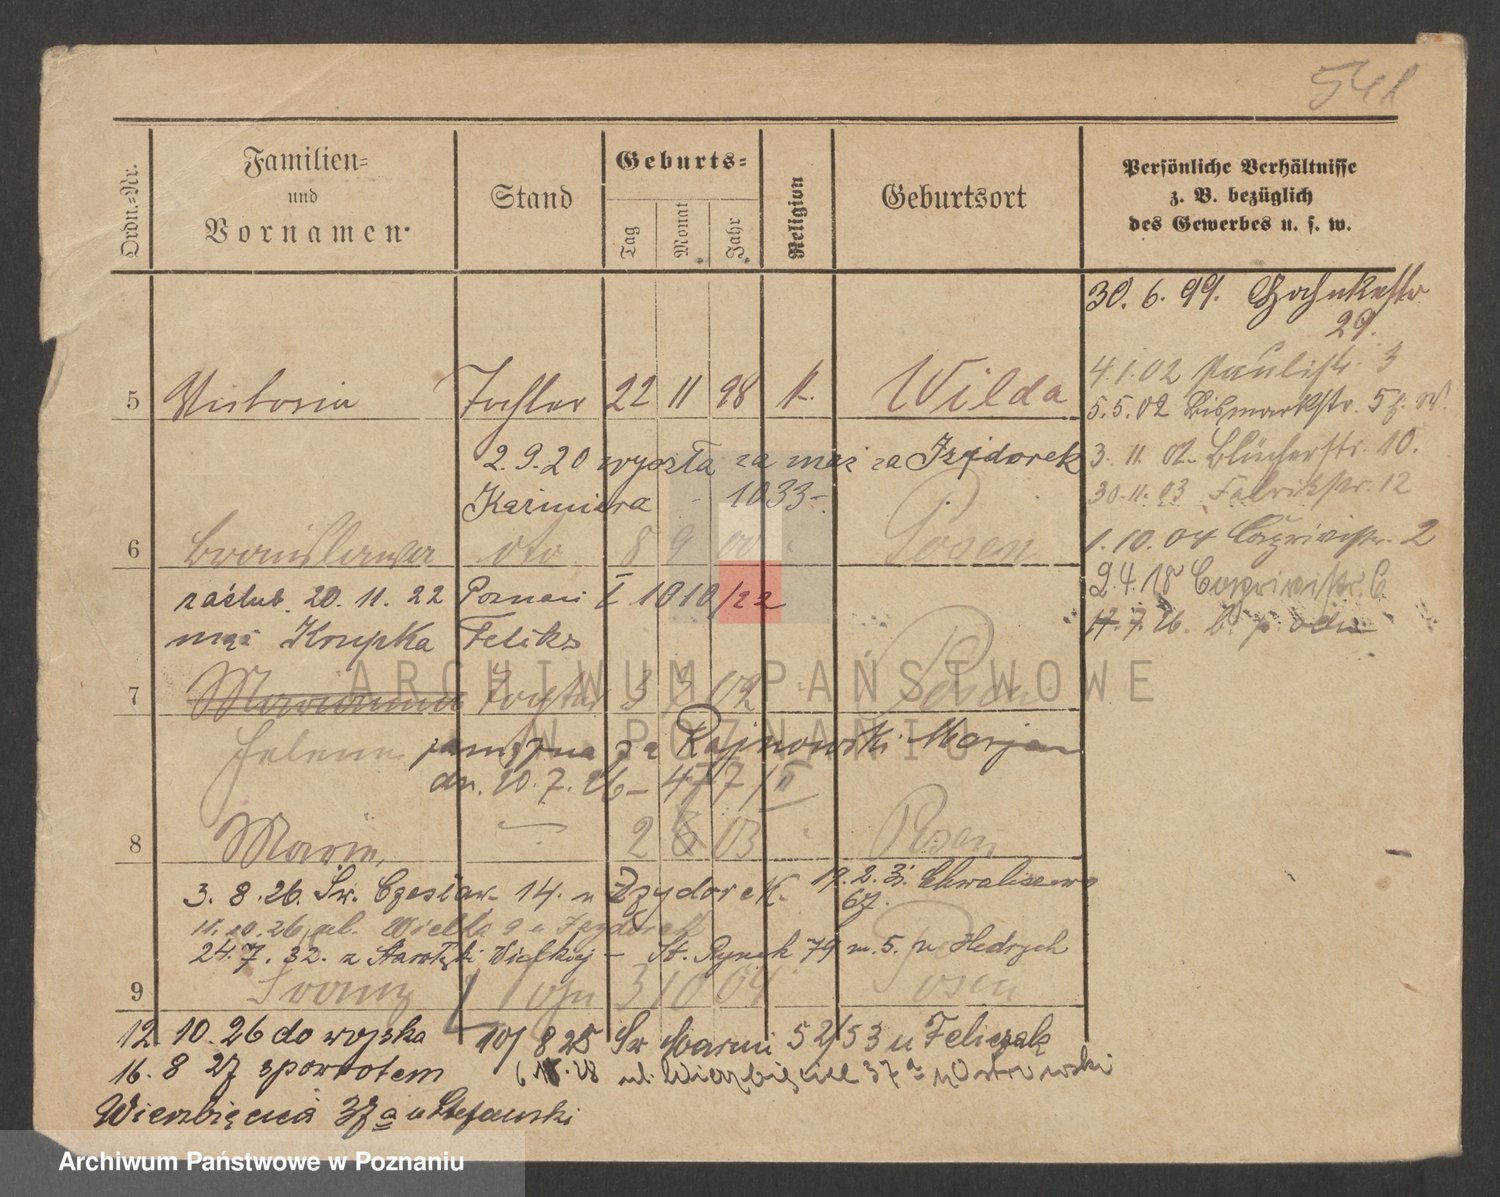 541
Ordn.-Nr.
Familien-
und
Vornamen.
Stand
Geburts-
Tag
Monat
Jahr
Religion
Geburtsort
Persönliche Verhältnisse
z. B. bezüglich
des Gewerbes u. s. w.
30. 6. 99.
29.
4.1.02 Paulistr. 3
5 Victoria Tochter 22 11 98 K. Wilda
5.5.02 Bismarckstr. 5
2.9.20 wyszła za mąż za Izydorek
3. 11. 02. Blücherstr. 10.
Kazimiera - 1033-
30.11.03 Fabrikstr. 12
6 Bronislawa dto 8 9 00 Posen
1. 10. 04 Caprivistr. 2
zaślub. 20. 11. 22 Poznań I 1010/22
2.4.18 Caprivistr. 6
mąż Krupka Feliks
17. 7. 26.
7 Marianna Tochter 3 3 02 Posen
Helena zamężna za Rajnowski Marjan
dn. 10. 7. 26 - 477/II
8 Marie 2 8 03 Posen
3. 8. 26. Św. Czesław. 14. u Izydorek. 19. 2. 31. Chwaliszewo
67.
11. 10. 26 ul. Wielka 9 u Izydorek
24. 7. 32. z Starołęki Wielkiej - St. Rynek 79 m. 5. u Hedrych
9 Franz Sohn 3 10 04 Posen
12. 10. 26 do wojska 10/8 25 Św. Marcin 52/53 u Feliczak
16. 8 27 zpowrotem ul. Wierzbięcice 37a u Ostrowski
Wierzbięcice 37a u Stefański
ARCHIWUM PAŃSTWOWE
W POZNANIU
Archiwum Państwowe w Poznaniu